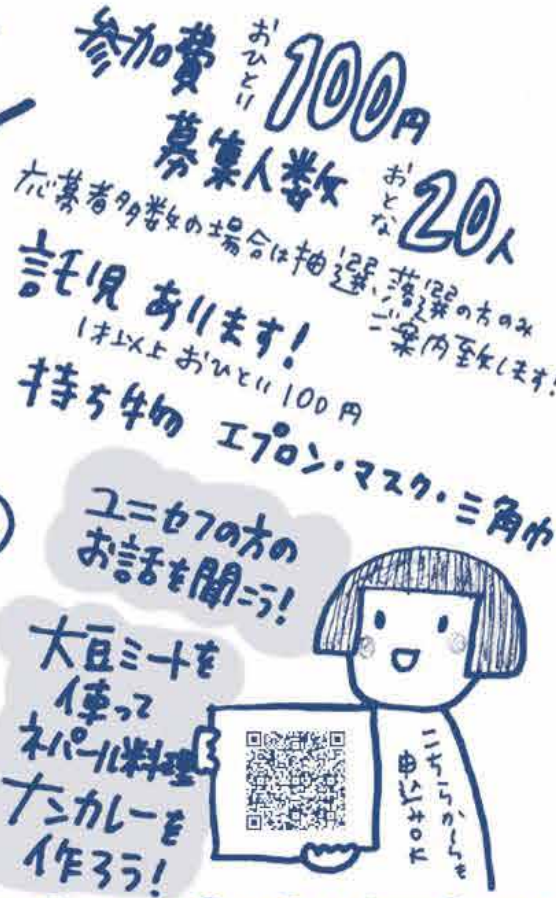 参加費 おひとり 100円
募集人数 おとな 20人
応募者多数の場合は抽選、落選の方のみ
ご案内致します!
託児 あります!
1才以上 おひとり 100円
持ち物 エプロン・マスク・三角巾
ユニセフの方の
お話を聞こう!
大豆ミートを
使って
ネパール料理
ナンカレーを
作ろう!
こちらからも
申込みOK